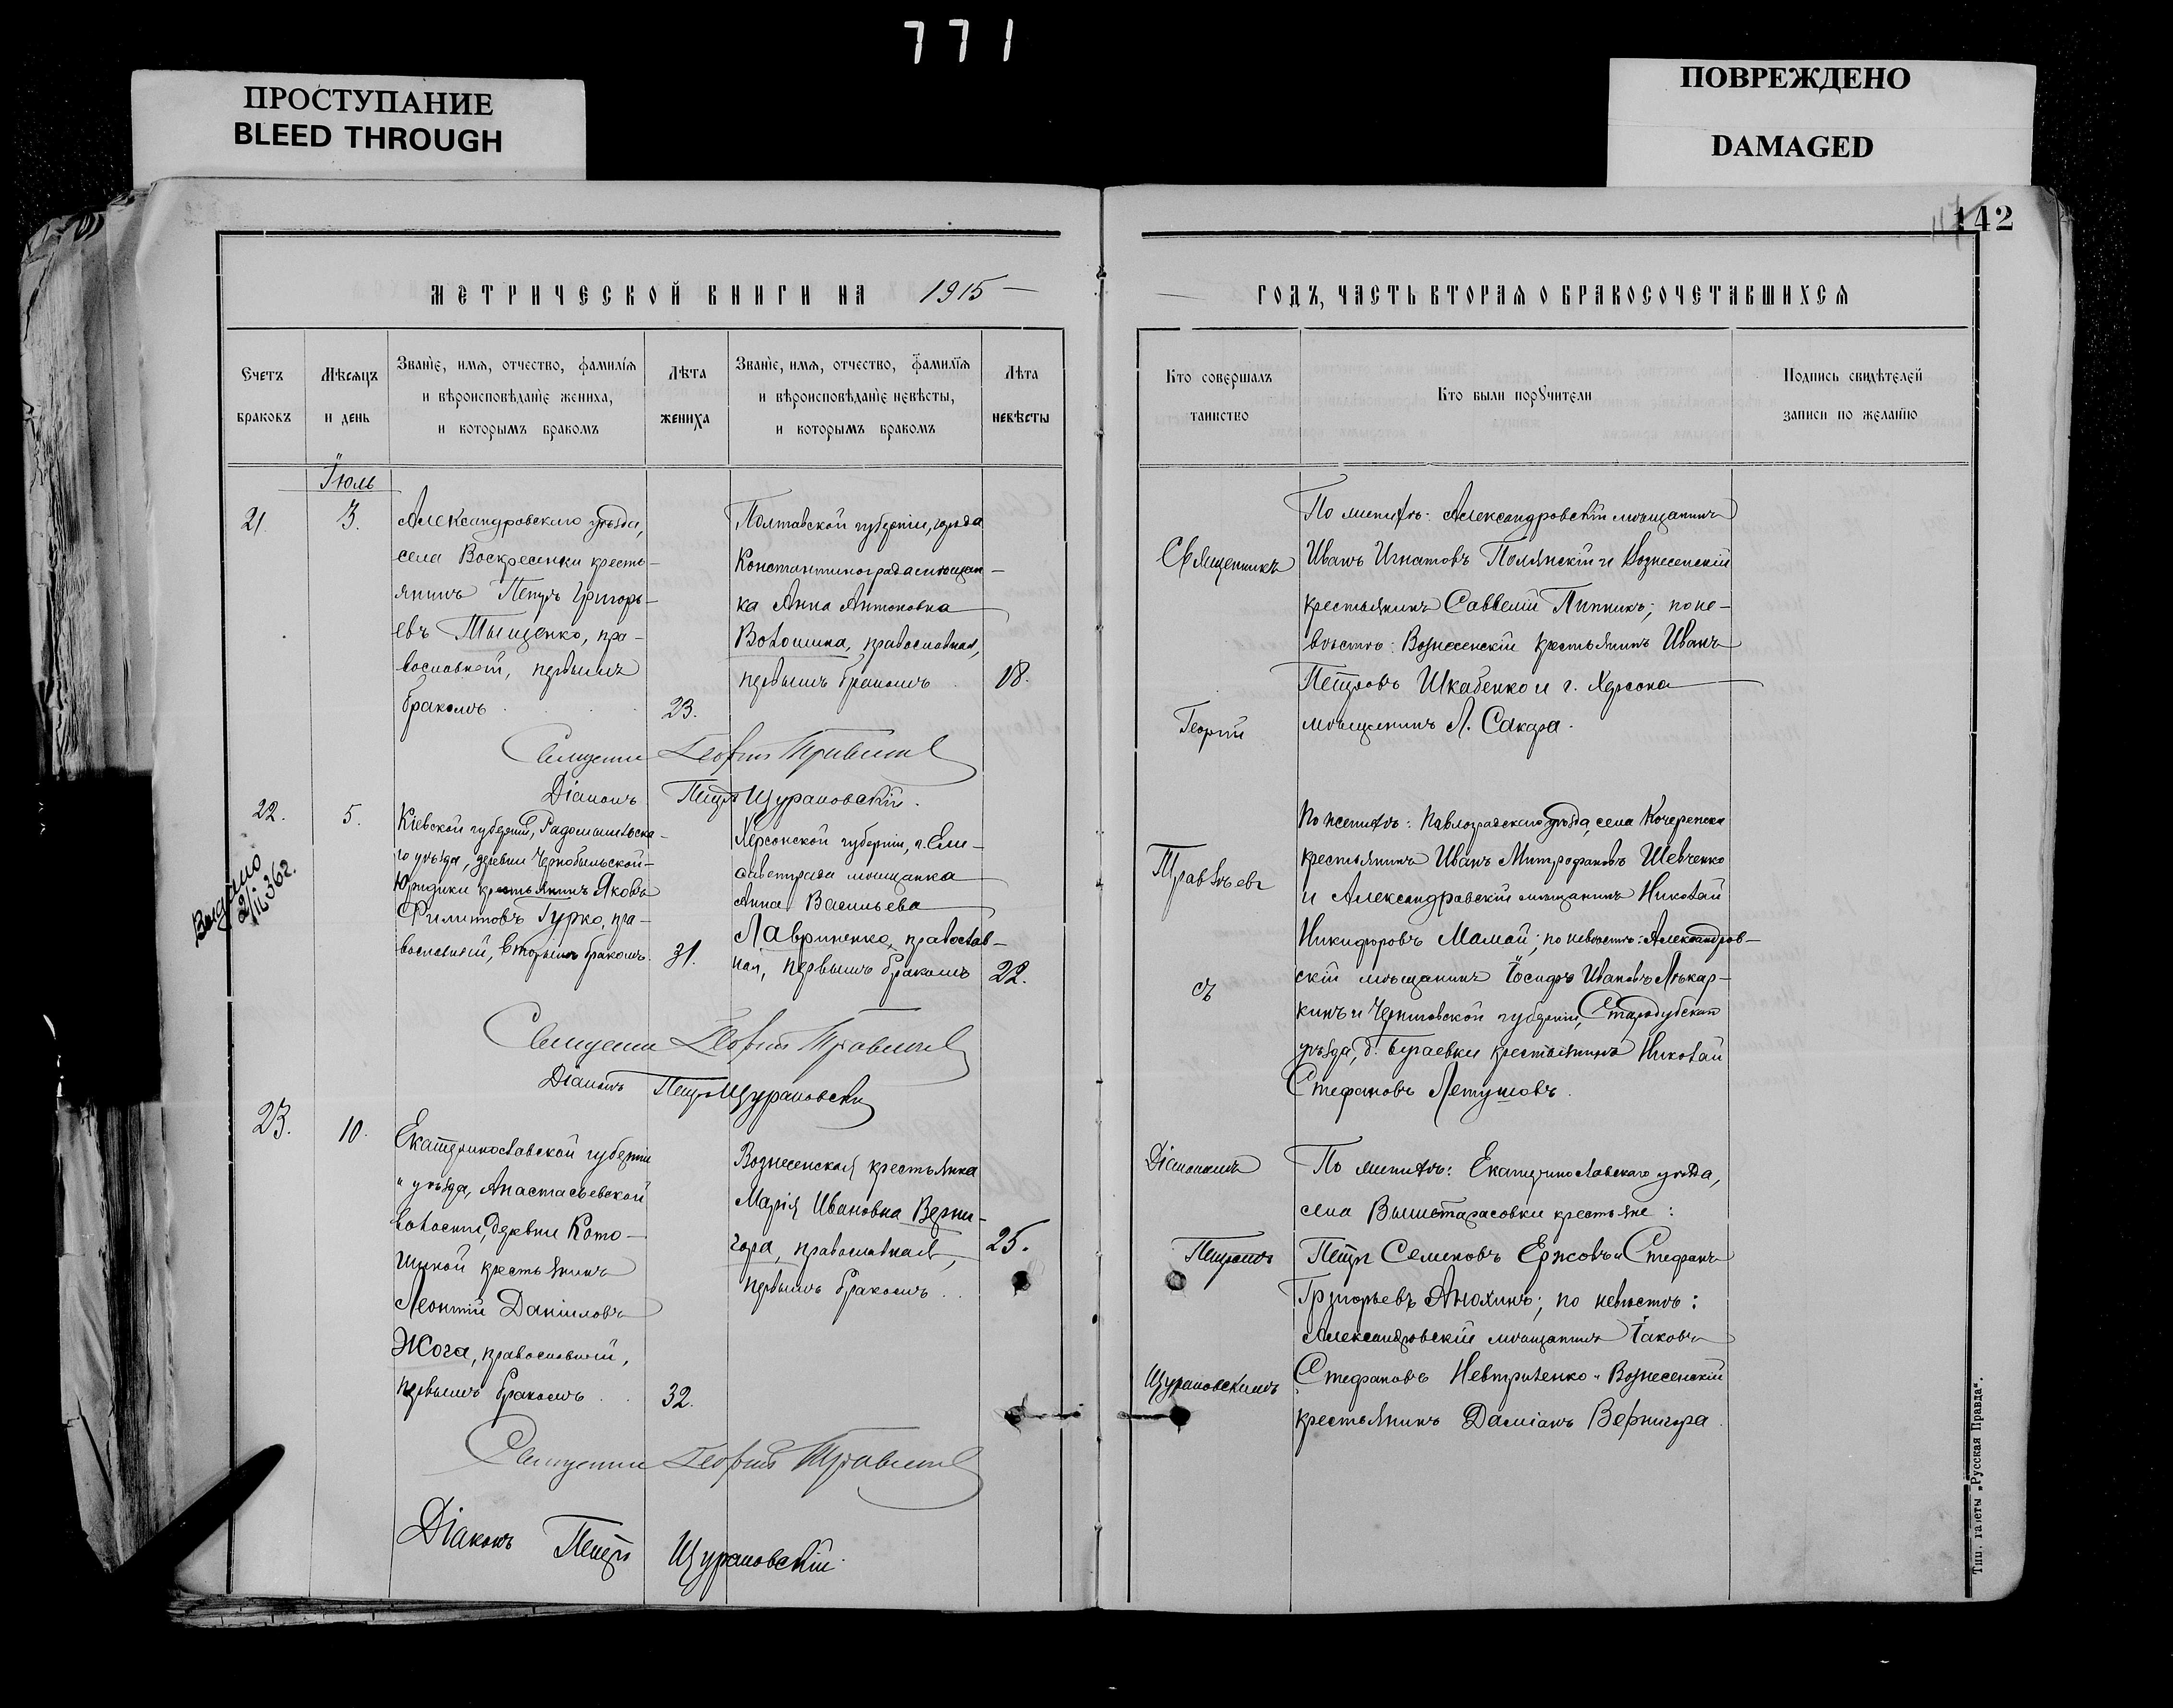 771
ПРОСТУПАНИЕ
BLEED THROUGH
ПОВРЕЖДЕНО
DAMAGED
142
МЕТРИЧЕСКОЙ КНИГИ НА 1915
Счетъ браковъ
Мѣсяцъ и день
Званіе, имя, отчество, фамилія
и вѣроисповѣданіе жениха,
и которымъ бракомъ
Лѣта жениха
Званіе, имя, отчество, фамилія
и вѣроисповѣданіе невѣсты,
и которымъ бракомъ
Лѣта невѣсты
Іюль
21
3.
Александровскаго уѣзда,
села Воскресенки кресть-
янинъ Петръ Григорь-
евъ Тыщенко, пра-
вославный, первымъ
бракомъ
23.
Полтавской губерніи, города
Константинограда мѣщан-
ка Анна Антоновна
Волошина, православная,
первымъ бракомъ
18.
Священникъ Георгій Травлѣевъ
Діаконъ Петръ Щурановскій.
22.
5.
Выдано
362.
Кіевской губерніи, Радомысльска-
го уѣзда, деревни Чернобыльской-
Юридики крестьянинъ Яковъ
Филипповъ Гурко, пра-
вославный, вторымъ бракомъ.
31.
Херсонской губерніи, г. Ели-
саветграда мѣщанка
Анна Васильева
Лавриненко, православ-
ная, первымъ бракомъ
22.
Священникъ Георгій Травлѣевъ
Діаконъ Петръ Щурановскій
23.
10.
Екатеринославской губерніи
" уѣзда, Анастасьевской
волости, деревни Кото-
шиной крестьянинъ
Леонтій Даніиловъ
Жога, православный,
первымъ бракомъ
32.
Вознесенская крестьянка
Марія Ивановна Верни-
гора, православная,
первымъ бракомъ
25.
Священникъ Георгій Травлѣевъ
Діаконъ Петръ Щурановскій.
ГОДЪ, ЧАСТЬ ВТОРАЯ О БРАКОСОЧЕТАВШИХСЯ
Кто совершалъ
таинство
Кто были поручители
Подпись свидѣтелей
записи по желанію
Священникъ
Георгій
Травлѣевъ
съ
Діакономъ
Петромъ
Щурановскимъ
По женихѣ: Александровскій мѣщанинъ
Иванъ Игнатовъ Полянскій и Вознесенскій
крестьянинъ Савелій Липникъ; по не-
вѣстѣ: Вознесенскій крестьянинъ Иванъ
Петровъ Шкабенко и г. Херсона
мѣщанинъ Л. Сакара.
По женихѣ: Павлоградскаго уѣзда, села Кочережка
крестьянинъ Иванъ Митрофановъ Шевченко
и Александровскій мѣщанинъ Николай
Никифоровъ Мамай; по невѣстѣ: Александров-
скій мѣщанинъ Іосифъ Ивановъ Лѣкар-
кинъ и Черниговской губерніи, Стародубскаго
уѣзда, д. Бугаевки крестьянинъ Николай
Стефановъ Летушовъ.
По женихѣ: Екатеринославскаго уѣзда,
села Вышетарасовки крестьяне:
Петръ Семеновъ Ержовъ и Стефанъ
Григорьевъ Анохинъ; по невѣстѣ:
Александровскій мѣщанинъ Іаковъ
Стефановъ Невтриленко и Вознесенскій
крестьянинъ Даміанъ Вернигора.
Тип. газеты „Русская Правда“.